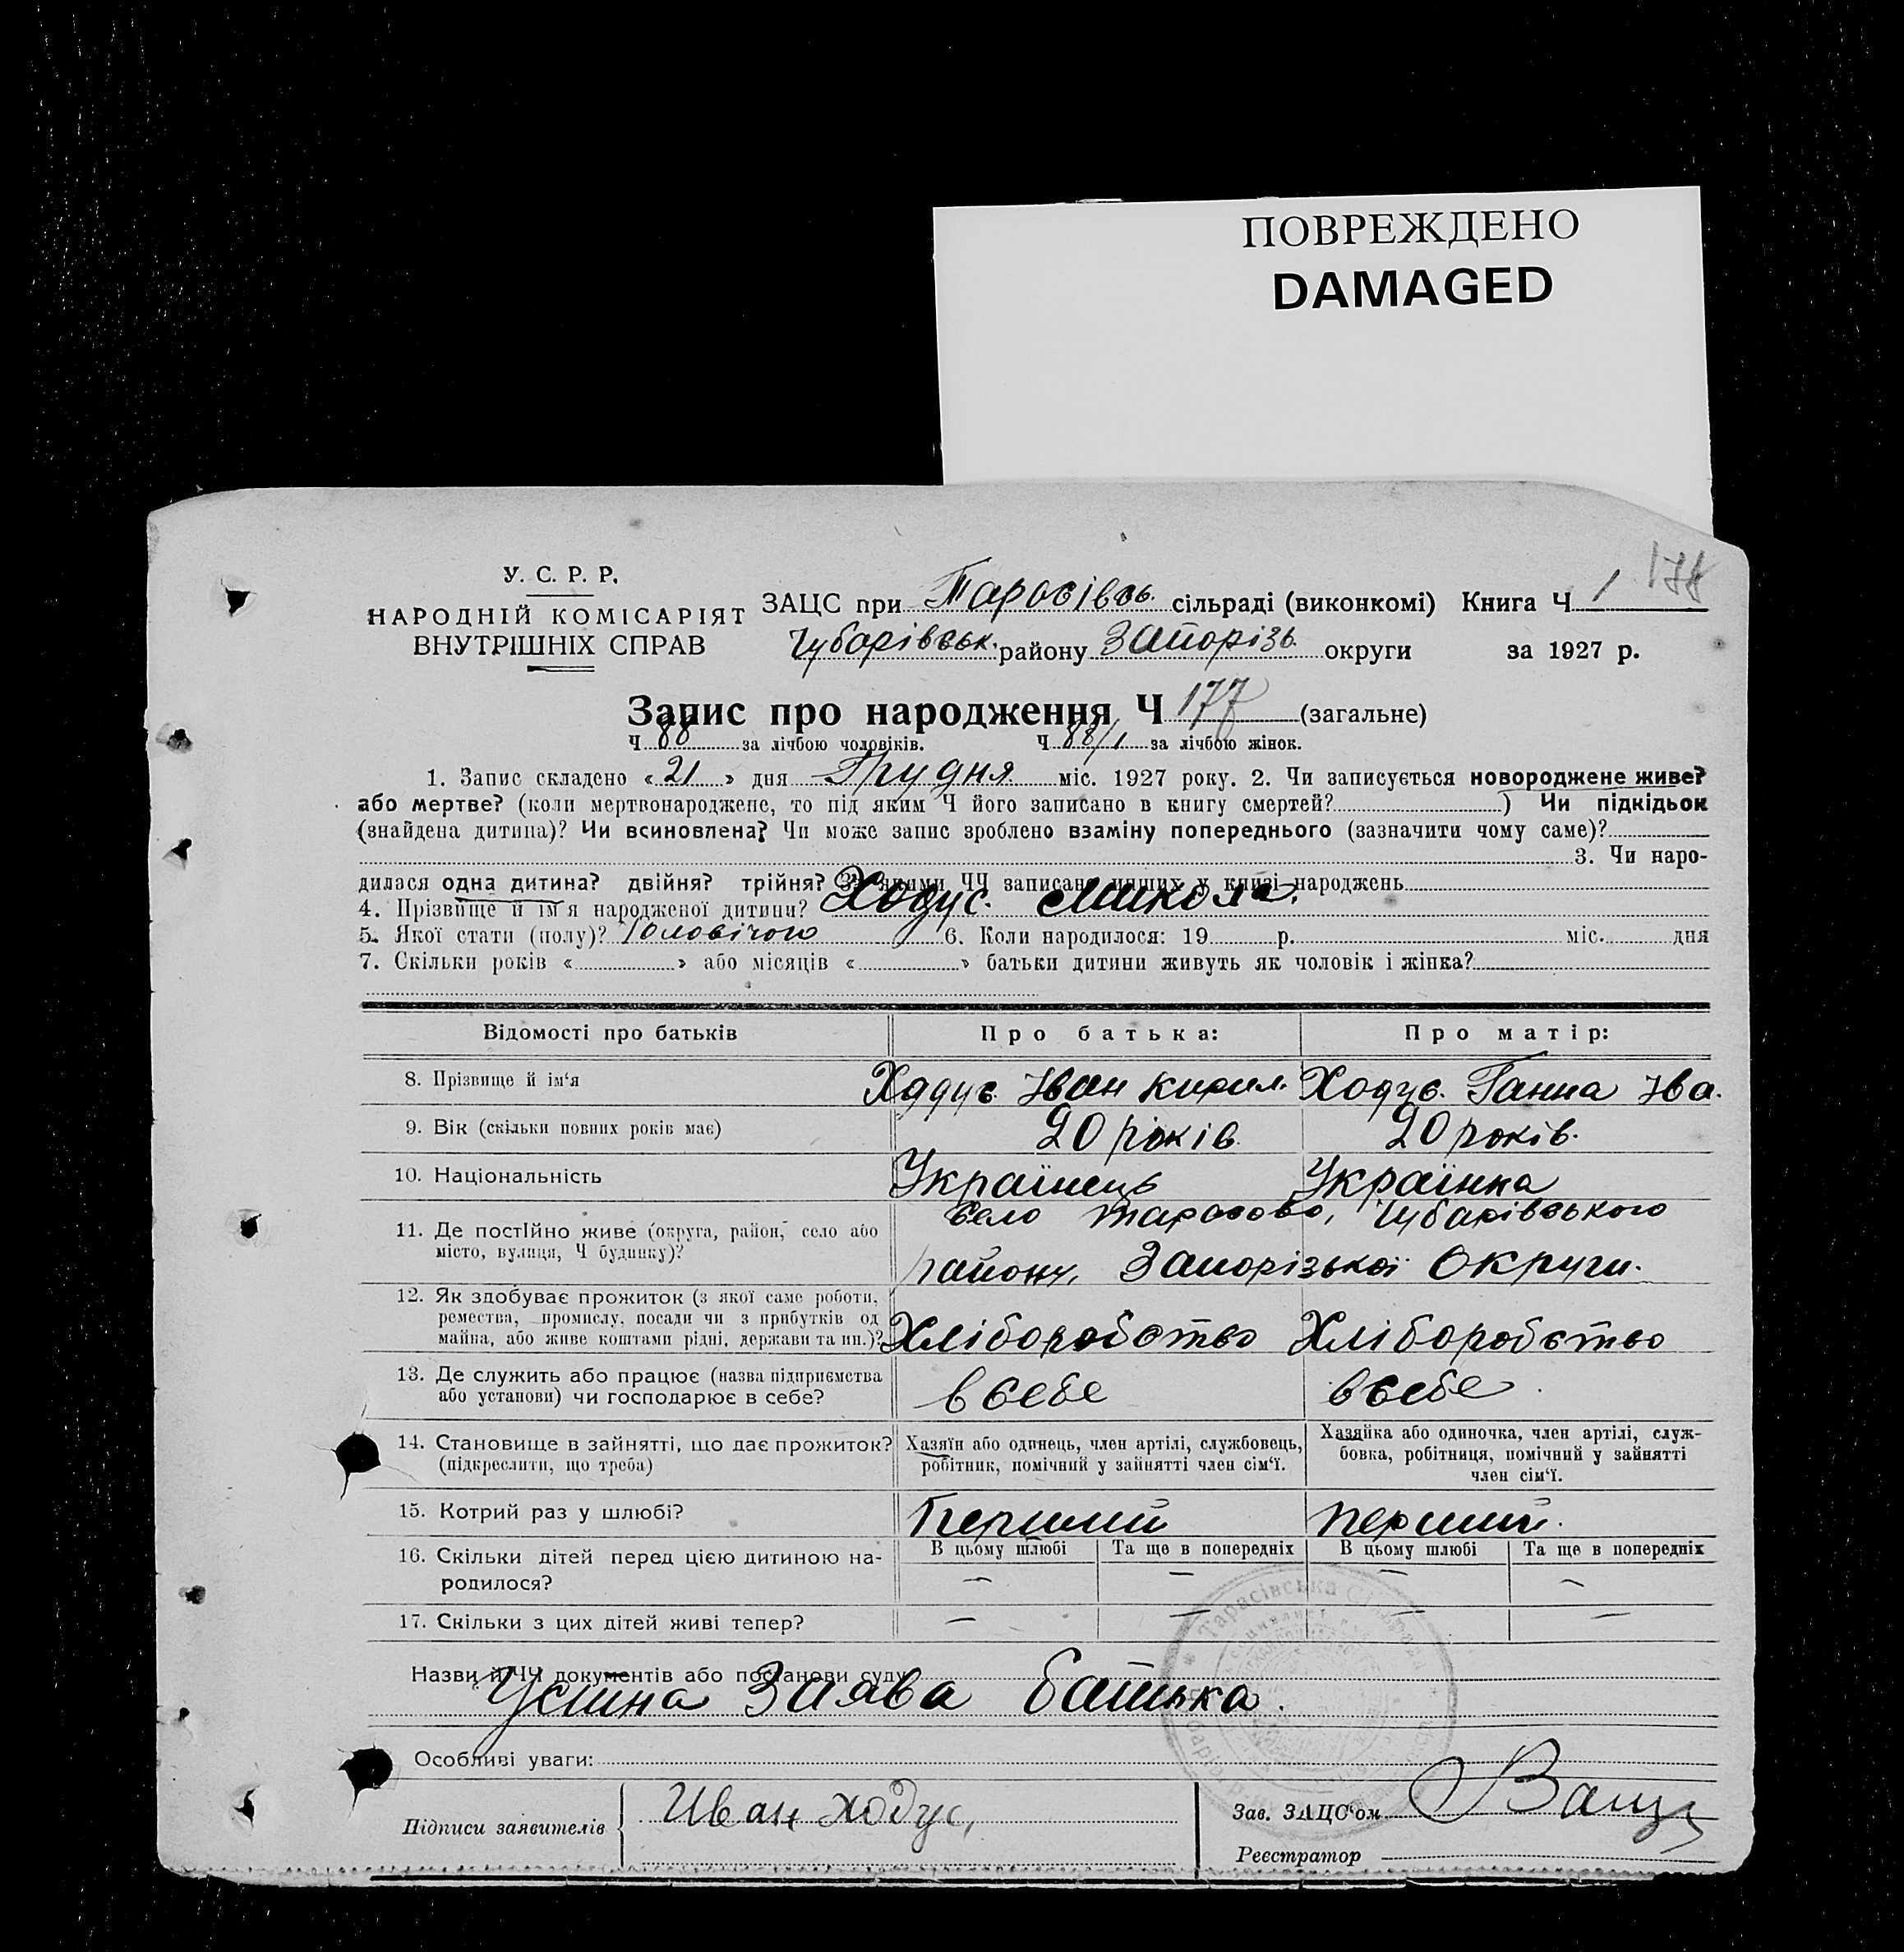 ПОВРЕЖДЕНО
DAMAGED
178
У. С. Р. Р.
НАРОДНІЙ КОМІСАРІЯТ
ВНУТРІШНІХ СПРАВ
ЗАЦС при Тарасівсь. сільраді (виконкомі) Книга Ч 1
Чубарівськ. району Запорізь. округи за 1927 р.
Запис про народження Ч 177 (загальне)
Ч 88 за лічбою чоловіків. Ч 88/1 за лічбою жінок.
1. Запис складено «21» дня Грудня міс. 1927 року. 2. Чи записується новороджене живе?
або мертве? (коли мертвонароджене, то під яким Ч його записано в книгу смертей? ) Чи підкідьок
(знайдена дитина)? Чи всиновлена? Чи може запис зроблено взаміну попереднього (зазначити чому саме)?
3. Чи наро-
дилася одна дитина? двійня? трійня? За якими ЧЧ записано инших у книзі народжень
4. Прізвище й ім'я народженої дитини? Ходус. Микола.
5. Якої стати (полу)? Чоловічого 6. Коли народилося: 19 р. міс. дня
7. Скільки років « » або місяців « » батьки дитини живуть як чоловік і жінка?
Відомості про батьків Про батька: Про матір:
8. Прізвище й ім'я Ходус Іван Кирил. Ходус. Ганна Іва.
9. Вік (скільки повних років має) 20 років. 20 років.
10. Національність Українець Українка
11. Де постійно живе (округа, район, село або
місто, вулиця, Ч будинку)?
село Тарасово, Чубарівського
району, Запорізької Округи.
12. Як здобуває прожиток (з якої саме роботи,
ремества, промислу, посади чи з прибутків од
майна, або живе коштами рідні, держави та ин.)? Хліборобство Хліборобство
13. Де служить або працює (назва підприємства
або установи) чи господарює в себе? в себе в себе
14. Становище в зайнятті, що дає прожиток?
(підкреслити, що треба)
Хазяїн або одинець, член артілі, службовець,
робітник, помічний у зайнятті член сім'ї.
Хазяйка або одиночка, член артілі, служ-
бовка, робітниця, помічний у зайнятті
член сім'ї.
15. Котрий раз у шлюбі? Перший перший.
16. Скільки дітей перед цією дитиною на-
родилося?
В цьому шлюбі Та ще в попередніх В цьому шлюбі Та ще в попередніх
— — — —
17. Скільки з цих дітей живі тепер? — — — —
Назви й ЧЧ документів або постанови суду
Усшна Заява батька.
Тарасівська Сільрада
Особливі уваги:
Підписи заявителів Иван Ходус,
Зав. ЗАЦС'ом
Реєстратор